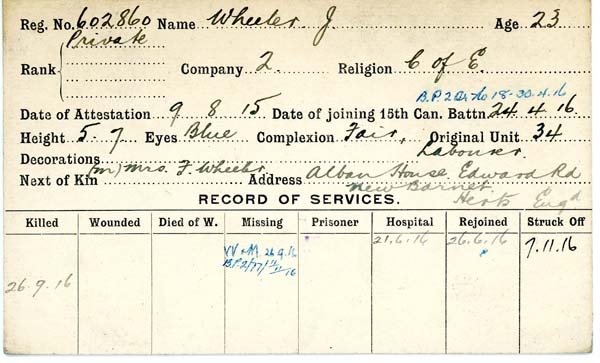 Reg. No. 602860 Name Wheeler J Age 23
Private
Rank Company 2. Religion C of E.
B.P. 2 Or. No 18-30.4.16
Date of Attestation 9 8 15 Date of joining 15th Can. Battn. 24 4 16
Height 5. 7 Eyes Blue Complexion Fair, Original Unit 34
Decorations Labourer.
Next of Kin (m) Mrs. F. Wheeler Address Alban House, Edward Rd
New Barnet
RECORD OF SERVICES. Herts Engd
Killed Wounded Died of W. Missing Prisoner Hospital Rejoined Struck Off
21.6.16 26.6.16 7.11.16
26.9.16